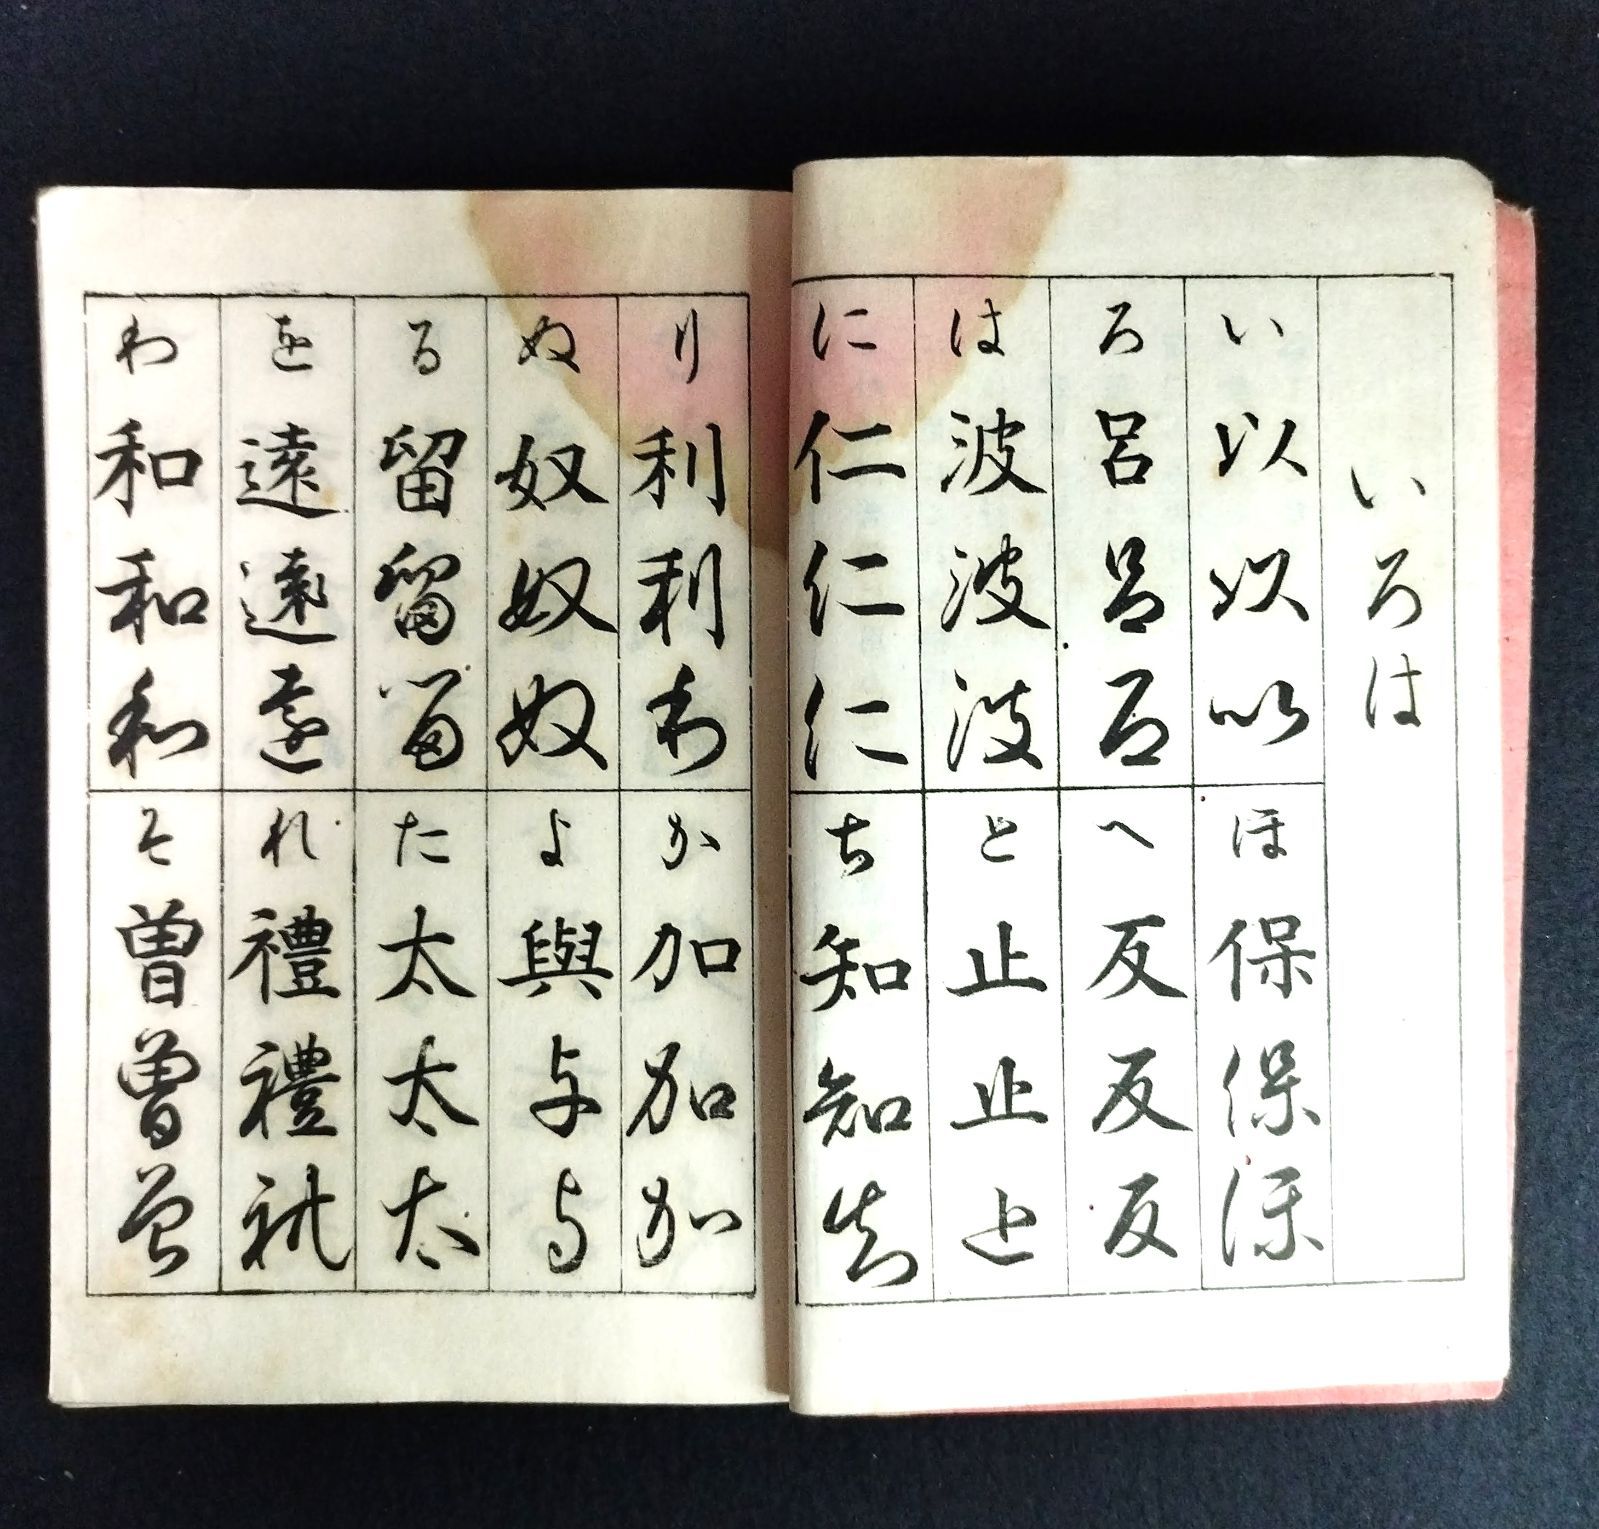 いろは
い以以以
ろ呂呂呂
は波波波
に仁仁仁
ほ保保保
へ反反反
と止止止
ち知知知
り利利利
ぬ奴奴奴
る留留留
を遠遠遠
わ和和和
か加加加
よ與与与
た太太太
れ禮禮礼
そ曽曽曽